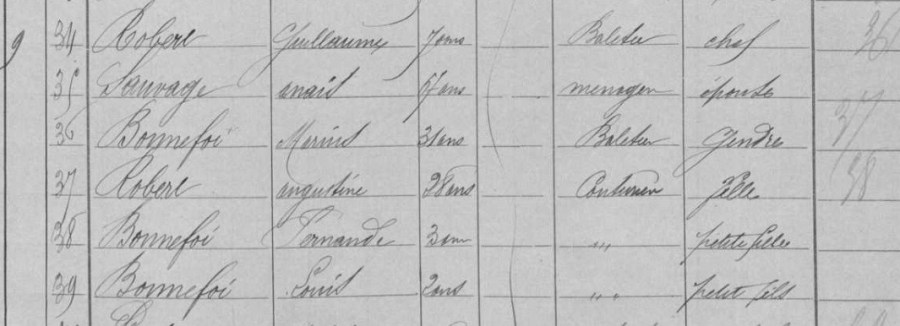 9 34 Robert Guillaume 70ans Batelier chef 36
35 Sauvage anais 67ans menagere épouse
36 Bonnefoi Marius 31ans Batelier Gendre 37
37 Robert augustine 28ans Couturière fille 38
38 Bonnefoi Fernande 3ans " petite fille
39 Bonnefoi Louis 2ans " petit fils